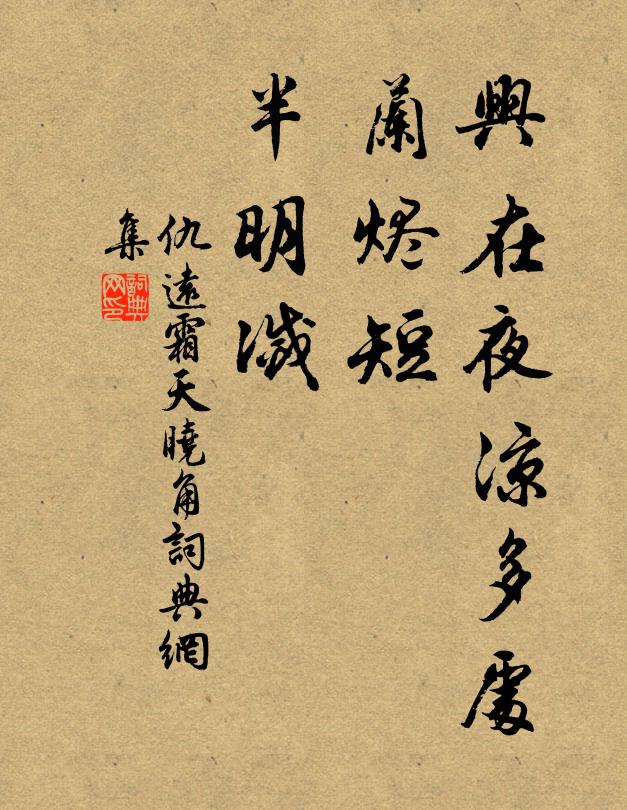 興在夜涼多處
蘭烬短
半明滅
仇遠霜天曉角詞典網
集
詞典
网印